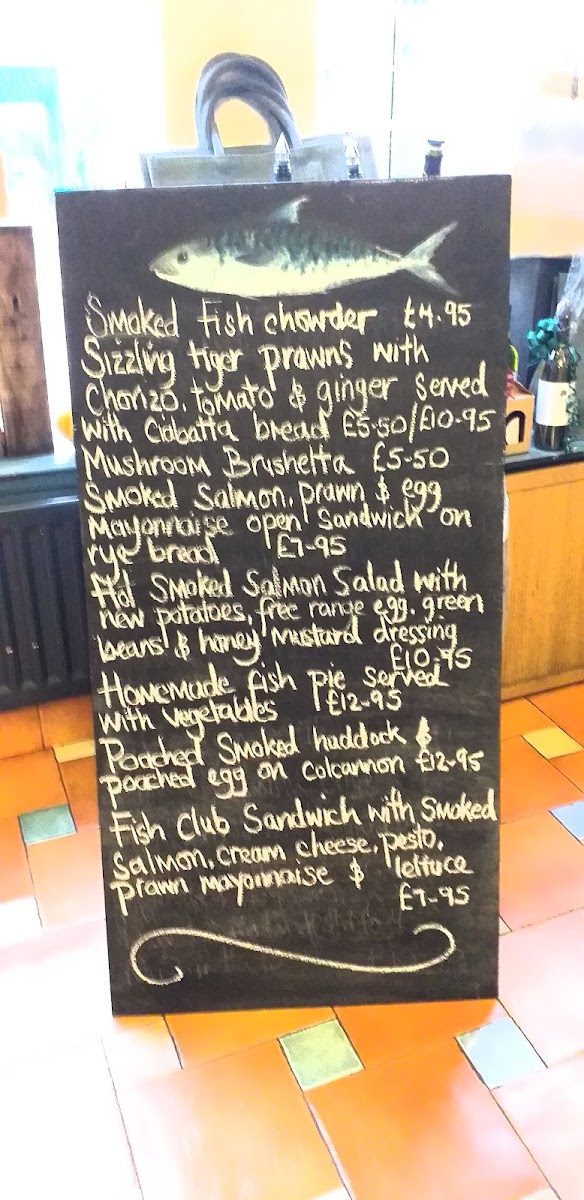 Smoked Fish chowder £4.95
Sizzling tiger prawns with
Chorizo, tomato & ginger served
with Ciabatta bread £5.50/£10.95
Mushroom Brushetta £5-50
Smoked Salmon, prawn & egg
Mayonnaise open Sandwich on
rye bread £7-95
Hot Smoked Salmon Salad with
new potatoes, free range egg, green
beans & honey mustard dressing
£10.95
Homemade fish pie served
with vegetables £12-95
Poached Smoked haddock &
poached egg on Colcannon £12-95
Fish Club Sandwich with Smoked
Salmon, cream cheese, pesto,
prawn mayonnaise & lettuce
£7-95